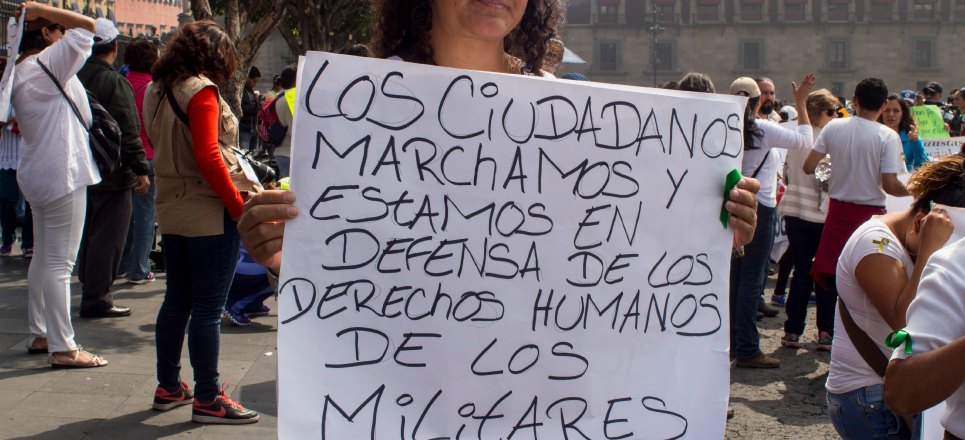 LOS CIUDADANOS
MARCHAMOS Y
ESTAMOS EN
DEFENSA DE LOS
DERECHOS HUMANOS
DE LOS
MILITARES